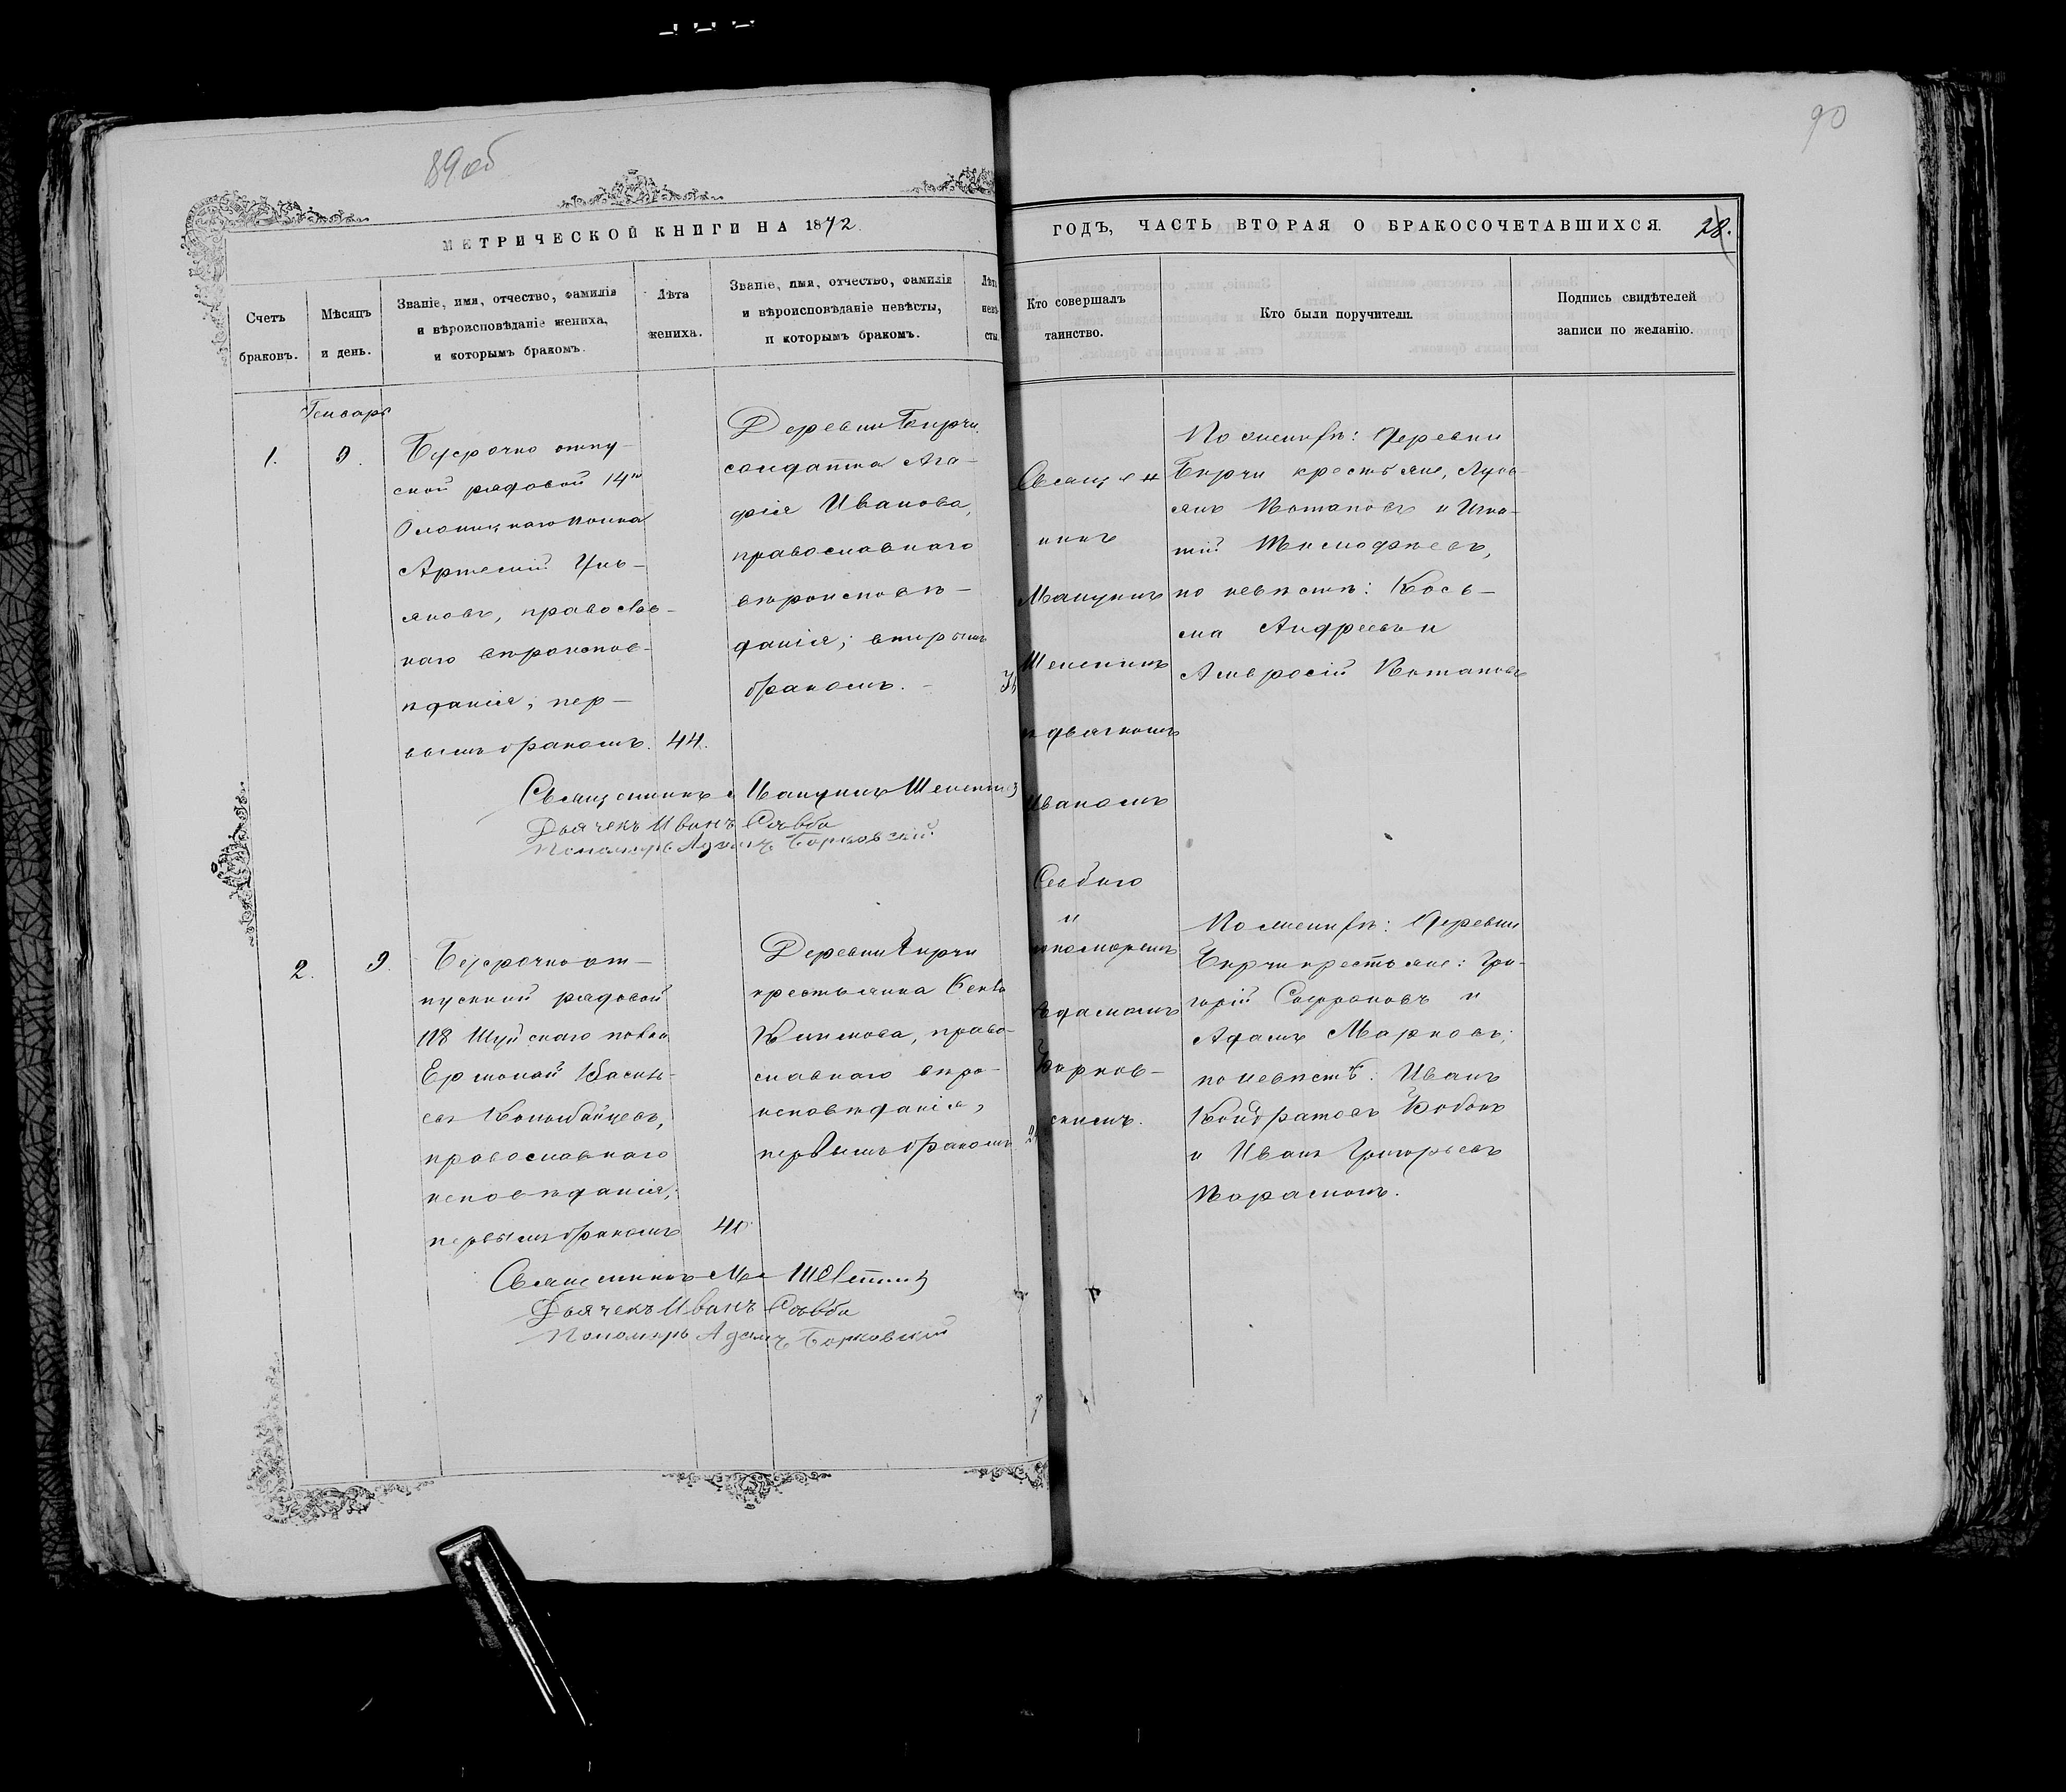 89 об
90
МЕТРИЧЕСКОЙ КНИГИ НА 1872
ГОДЪ, ЧАСТЬ ВТОРАЯ О БРАКОСОЧЕТАВШИХСЯ.
28.
Счетъ
браковъ.
Мѣсяцъ
и день.
Званіе, имя, отчество, фамилія
и вѣроисповѣданіе жениха,
и которымъ бракомъ.
Лѣта
жениха.
Званіе, имя, отчество, фамилія
и вѣроисповѣданіе невѣсты,
и которымъ бракомъ.
Лѣта
невѣ-
сты.
Кто совершалъ
таинство.
Кто были поручители.
Подпись свидѣтелей
записи по желанію.
Генварь
1.
9.
Безсрочно отпу-
ской рядовой 14го
Олонецкаго полка
Артемій Улья-
новъ, православ-
наго вѣроиспов-
ѣданія; пер-
вымъ бракомъ.
44.
Деревни Бирчи
солдатка Ага-
фія Иванова,
православнаго
вѣроисповѣ-
данія; вторымъ
бракомъ. -
Священ
никъ
Шелепинъ
дьячкомъ
Иваномъ
Саббою
и
пономаремъ
Адамомъ
Борков-
скимъ.
По женихѣ: деревни
Бирчи крестьяне, Лукь-
янъ Потаповъ и Игна-
тій Тимофѣевъ,
по невѣстѣ: Козь-
ма Андреевъ и
Амвросій Потаповъ
Священникъ Шелепинъ
Дьячекъ Иванъ Савба
Пономарь Адамъ Борковскій
2.
9.
Безсрочно от-
пускной рядовой
118 Шуйскаго полка
Ермолай Василь-
евъ
православнаго
исповѣданія;
первымъ бракомъ
40
Деревни Бирчи
крестьянка
Екимова, право-
славнаго вѣро-
исповѣданія,
первымъ бракомъ
По женихѣ: Деревни
Бирчи крестьяне: Гри-
горій Софроновъ и
Адамъ Марковъ;
по невѣстѣ: Иванъ
Кондратовъ
и Иванъ Григорьевъ
Священникъ
Дьячекъ Иванъ Савба
Пономарь Адамъ Борковскій